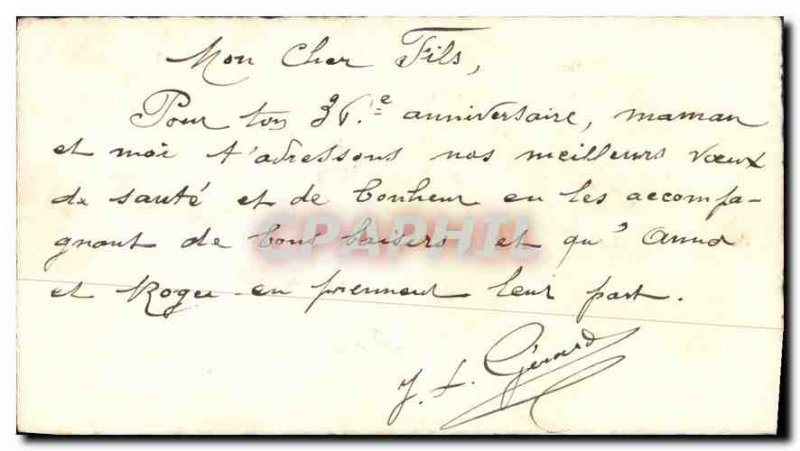 Mon Cher Fils,
Pour ton 36.e anniversaire, maman
et moi t'adressons nos meilleurs vœux
de santé et de bonheur en les accompa-
gnant de bons baisers et qu'
et Roger en prennent leur part.
J. L. Gérard
CPAPHIL